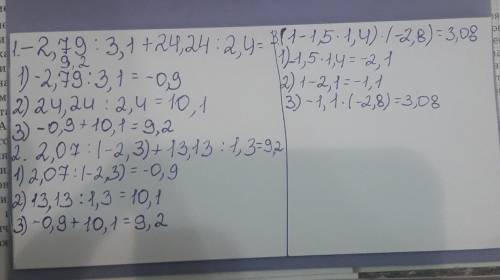 1. -2,79 : 3,1 + 24,24 : 2,4 =
9,2
1) -2,79 : 3,1 = -0,9
2) 24,24 : 2,4 = 10,1
3) -0,9 + 10,1 = 9,2
2. 2,07 : (-2,3) + 13,13 : 1,3 = 9,2
1) 2,07 : (-2,3) = -0,9
2) 13,13 : 1,3 = 10,1
3) -0,9 + 10,1 = 9,2
3. (1 - 1,5 · 1,4) · (-2,8) = 3,08
1) -1,5 · 1,4 = -2,1
2) 1 - 2,1 = -1,1
3) -1,1 · (-2,8) = 3,08